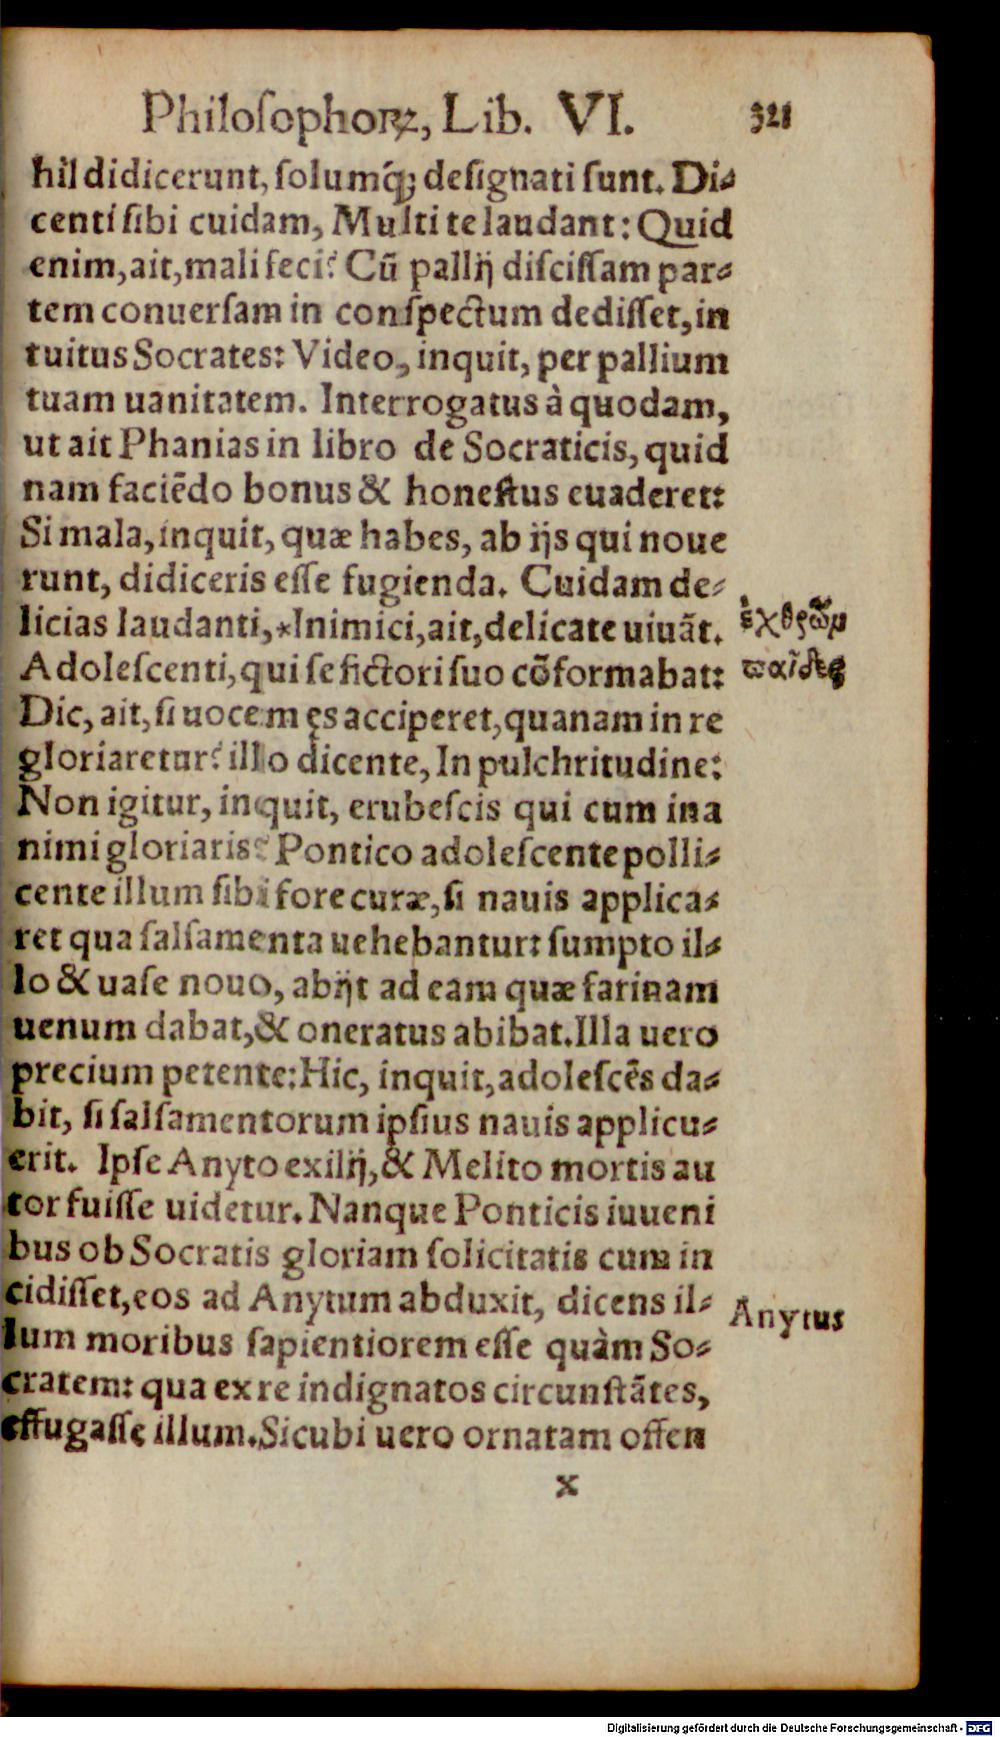 Philoſophorꝝ, Lib. VI. 321
hil didicerunt, ſolumq́; deſignati ſunt. Di⸗
centi ſibi cuidam, Multi te laudant: Quid
enim, ait, mali feci? Cũ pallij diſciſſam par⸗
tem conuerſam in conſpectum dediſſet, in
tuitus Socrates: Video, inquit, per pallium
tuam uanitatem. Interrogatus à quodam,
ut ait Phanias in libro de Socraticis, quid
nam faciẽdo bonus & honeſtus euaderet:
Si mala, inquit, quæ habes, ab ijs qui noue
runt, didiceris eſſe fugienda. Cuidam de⸗
licias laudanti, *Inimici, ait, delicate uiuãt.
ἐχθρῶν
παῖδες
Adoleſcenti, qui ſe fictori ſuo cõformabat:
Dic, ait, ſi uocem ęs acciperet, quanam in re
gloriaretur? illo dicente, In pulchritudine:
Non igitur, inquit, erubeſcis qui cum ina
nimi gloriaris? Pontico adoleſcente polli⸗
cente illum ſibi fore curæ, ſi nauis applica⸗
ret qua ſalſamenta uehebantur: ſumpto il⸗
lo & uaſe nouo, abijt ad eam quæ farinam
uenum dabat, & oneratus abibat. Illa uero
precium petente: Hic, inquit, adoleſcẽs da⸗
bit, ſi ſalſamentorum ipſius nauis applicu⸗
erit. Ipſe Anyto exilij, & Melito mortis au
tor fuiſſe uidetur. Nanque Ponticis iuueni
bus ob Socratis gloriam ſolicitatis cum in
cidiſſet, eos ad Anytum abduxit, dicens il⸗
Anytus
lum moribus ſapientiorem eſſe quàm So⸗
cratem: qua ex re indignatos circunſtãtes,
effugaſſe illum. Sicubi uero ornatam offen
x
Digitalisierung gefördert durch die Deutsche Forschungsgemeinschaft - DFG